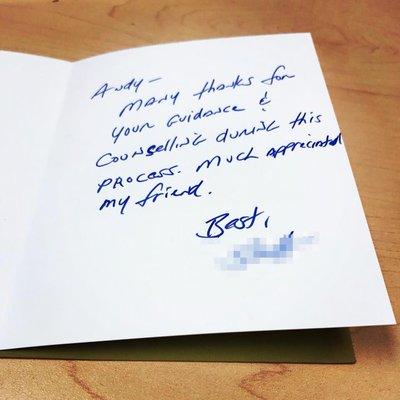 Andy—
Many thanks for
your guidance &
counselling during this
process. Much appreciated
my friend.
Best,